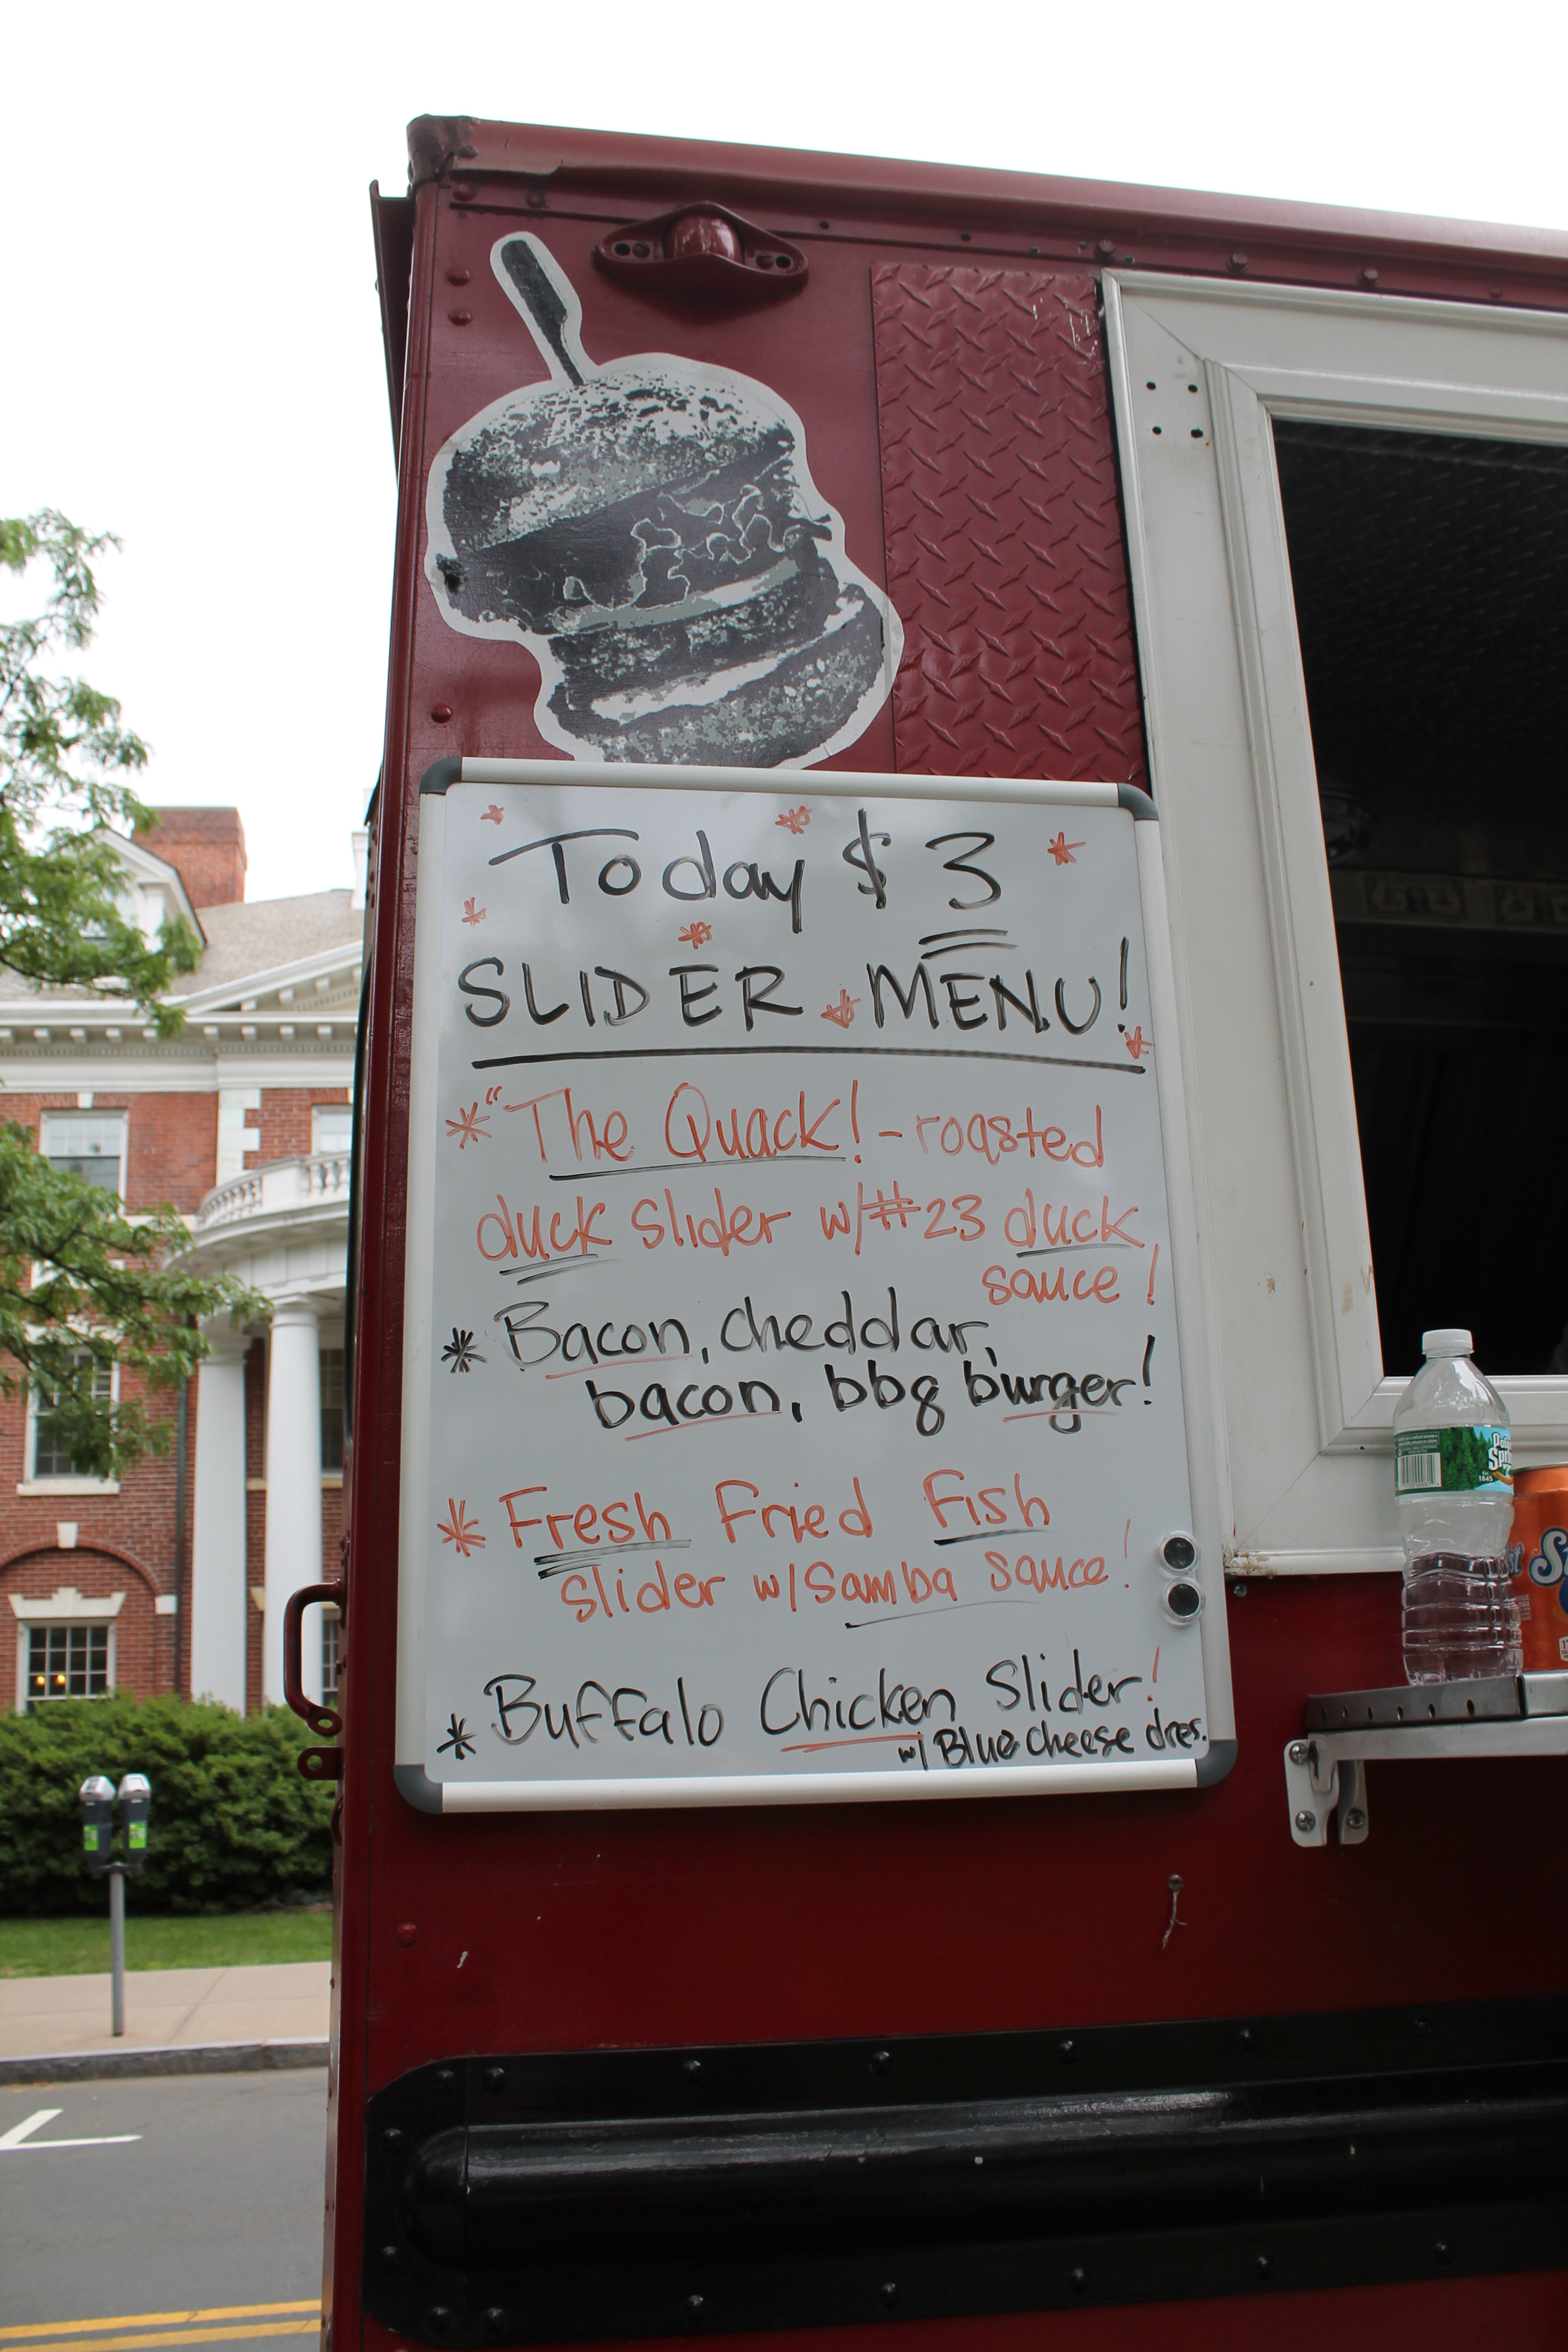 Today $3
SLIDER MENU!
* "The Quack! - roasted
duck slider w/ #23 duck
sauce!
* Bacon, cheddar,
bacon, bbq burger!
* Fresh Fried Fish
slider w/ Samba sauce!
* Buffalo Chicken Slider!
w/ Blue cheese dres.